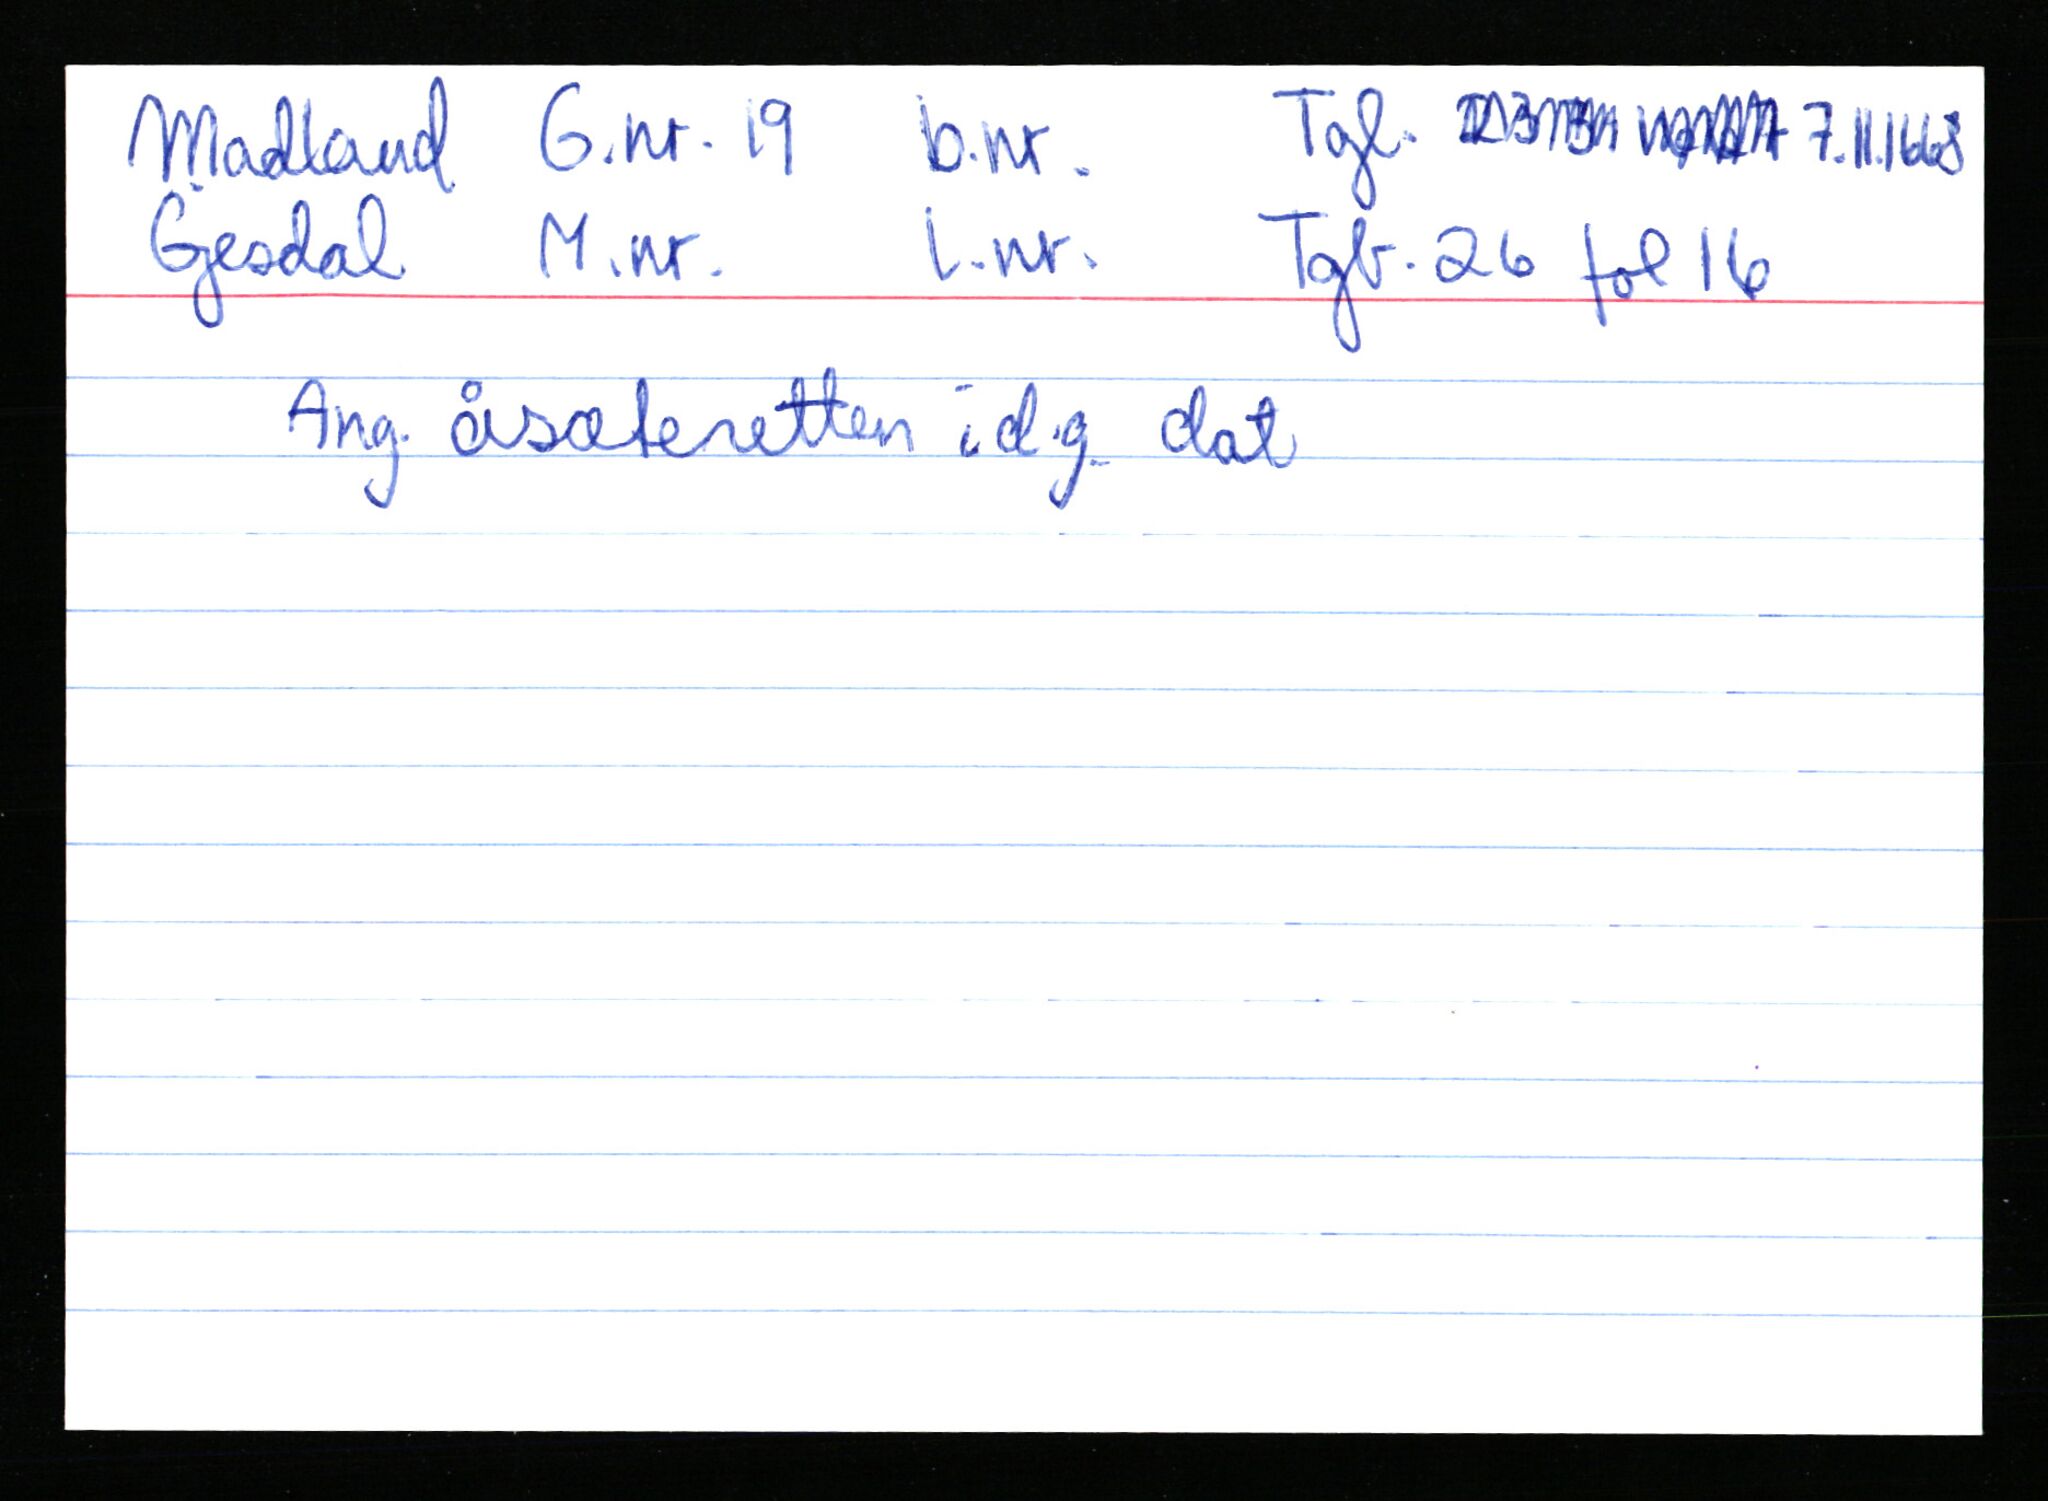 Madland G.nr. 19 b.nr. Tgl. 7.11.1668
Gjesdal M.nr. L.nr. Tgb. 26 fol 16
Ang. åsæteretten i d.g. dat